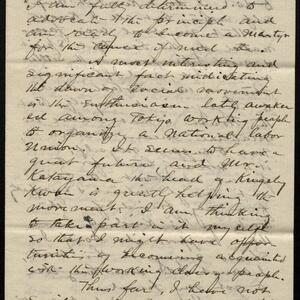 I am fully determined to
advocate the principle and
am ready to become a Martyr
for the cause if need be.
A most interesting and
significant fact indicating
the dawn of social movement
is the enthusiasm lately awaken
ed among Tokyo working people
to organize a National Labor
Union. It seems to have a
great future and Mr.
Katayama the head of Kingsley
Kwan is greatly helping the
movement. I am thinking
to take part in it myself
so that I might have oppor-
tunities by becoming acquainted
with the working class people.
Thus far I have not